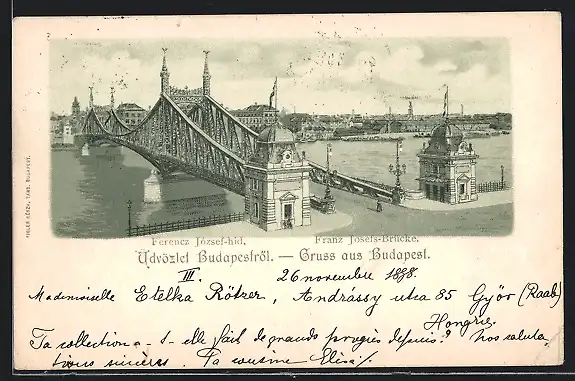 Ferencz József-híd. Franz Josefs-Brücke.
Üdvözlet Budapestről. — Gruss aus Budapest.
III. 26 novembre 1898.
Mademoiselle Etelka Rötzer, Andrássy utca 35 Györ (Raab)
Hongrie.
Ta collection a-t-elle fait de grands progrès depuis? nos saluta-
tions sincères. Ta cousine Elisa